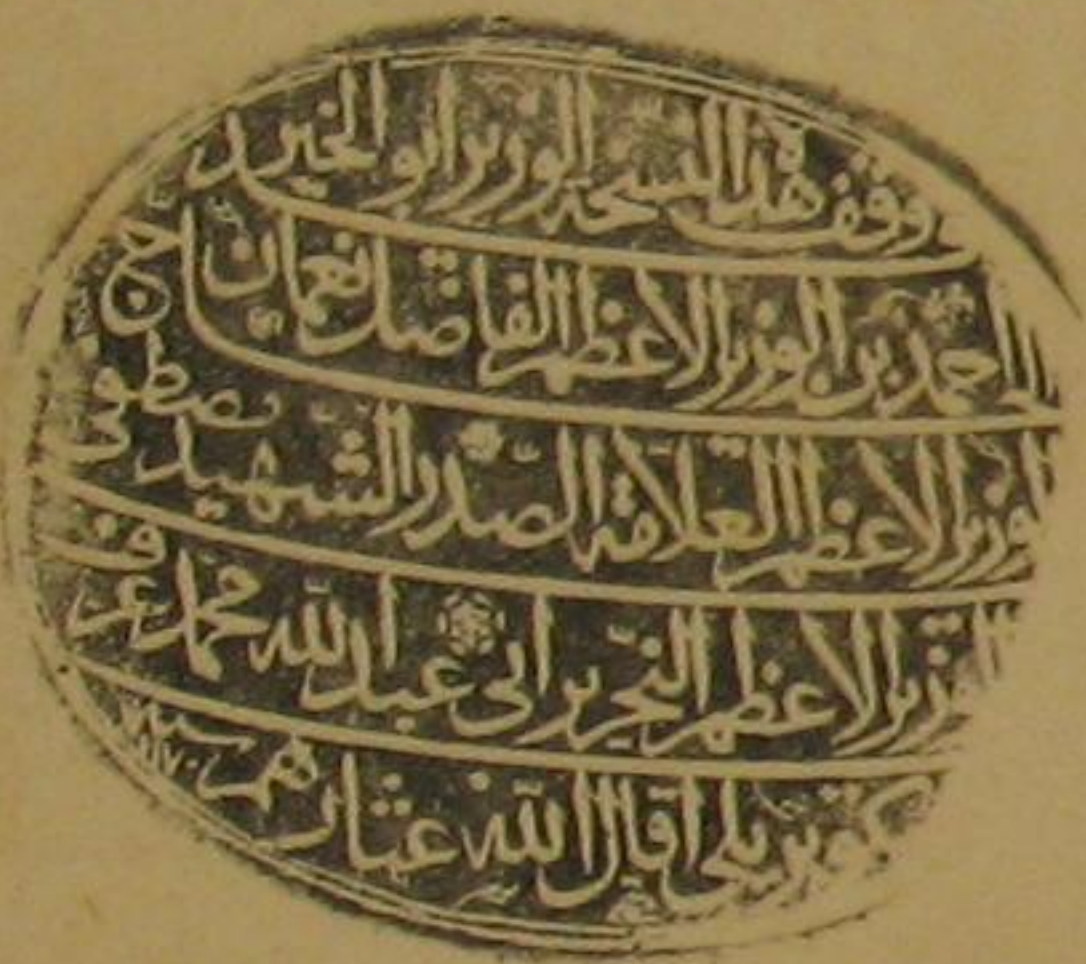 وقف هذا النسخة الوزير ابو الخير
الحاج احمد بن الوزير الاعظم الفاضل نعمان
الوزير الاعظم العلامة الصدر الشهيد مصطفى
الوزير الاعظم النحرير ابى عبد الله محمد عرف
كوبريلى اقال الله عثارهم سنة